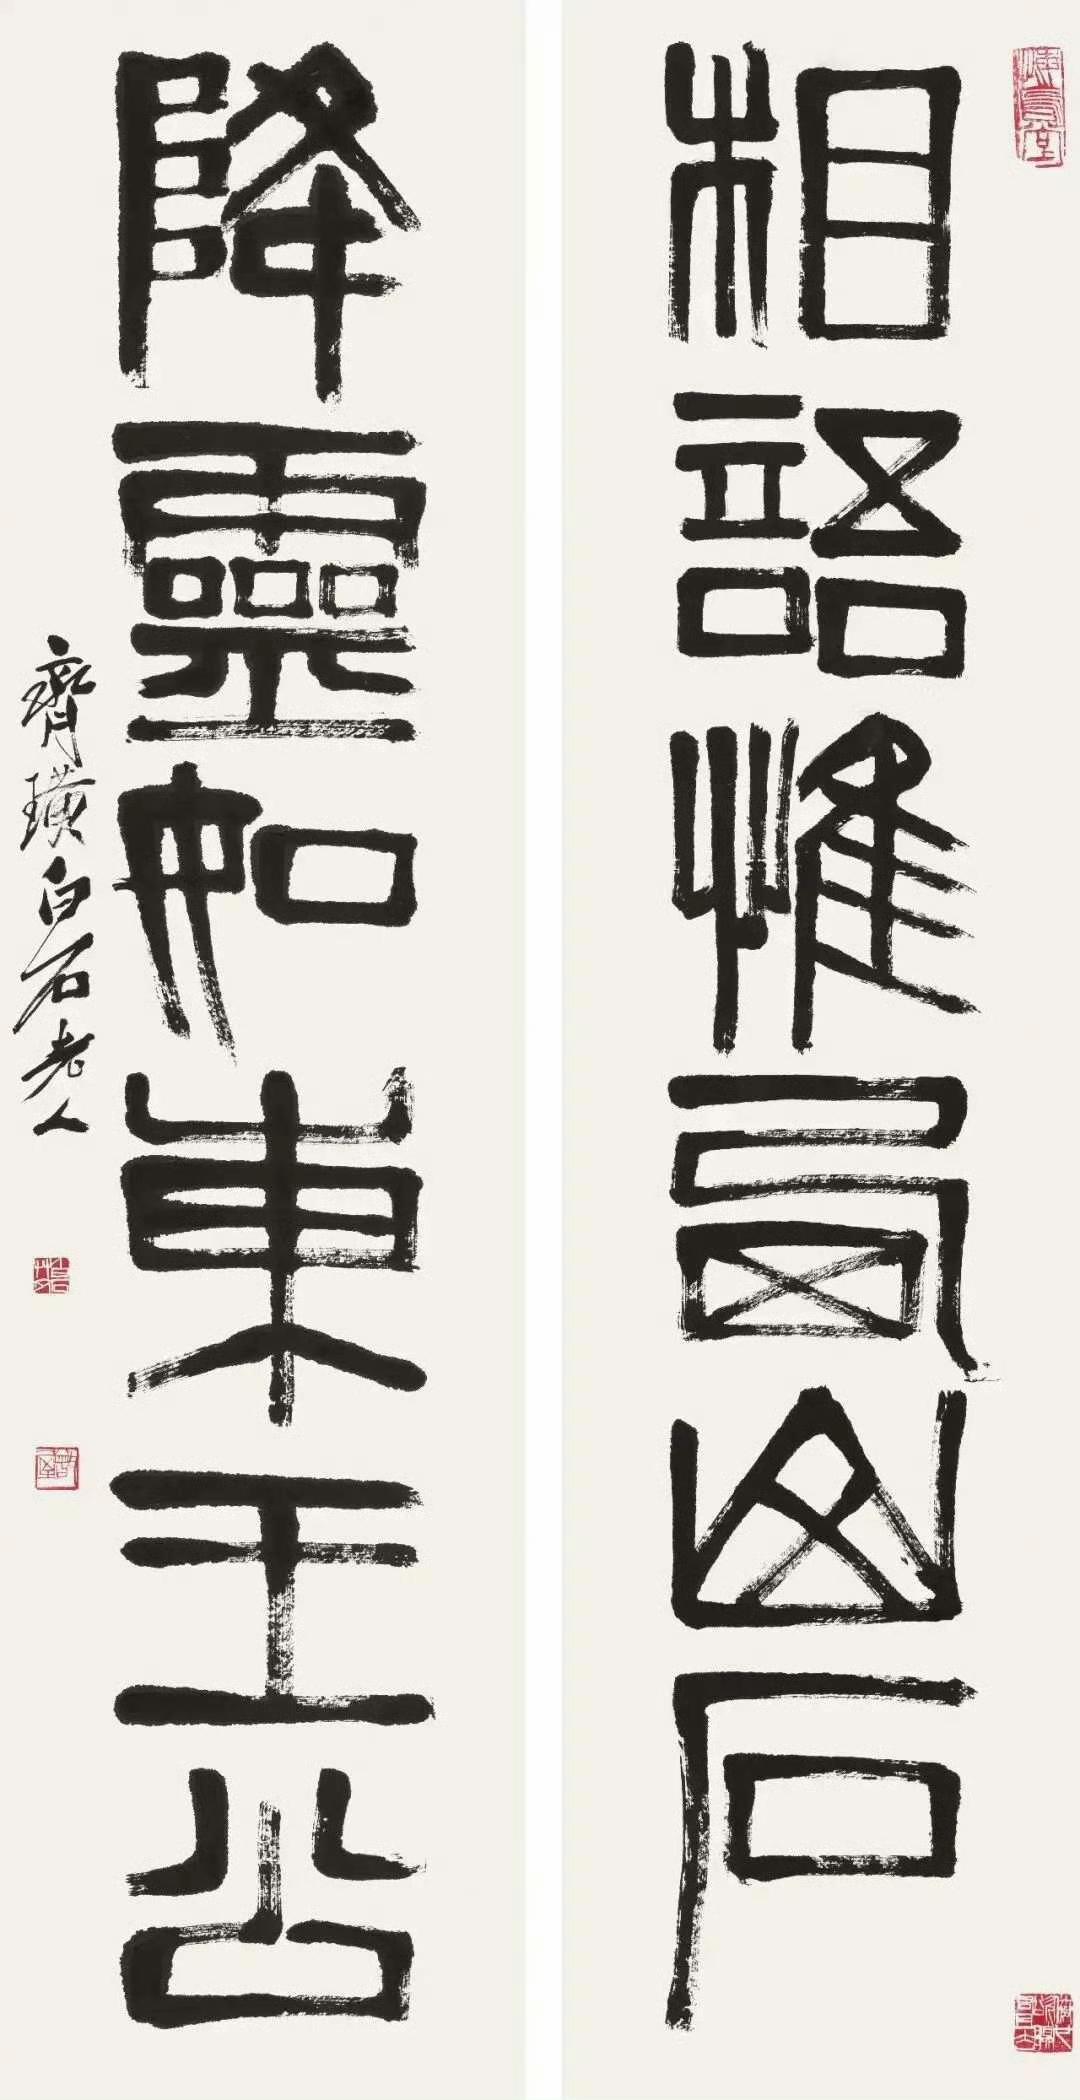 相語惟西山石
降靈如東王公
齊璜白石老人